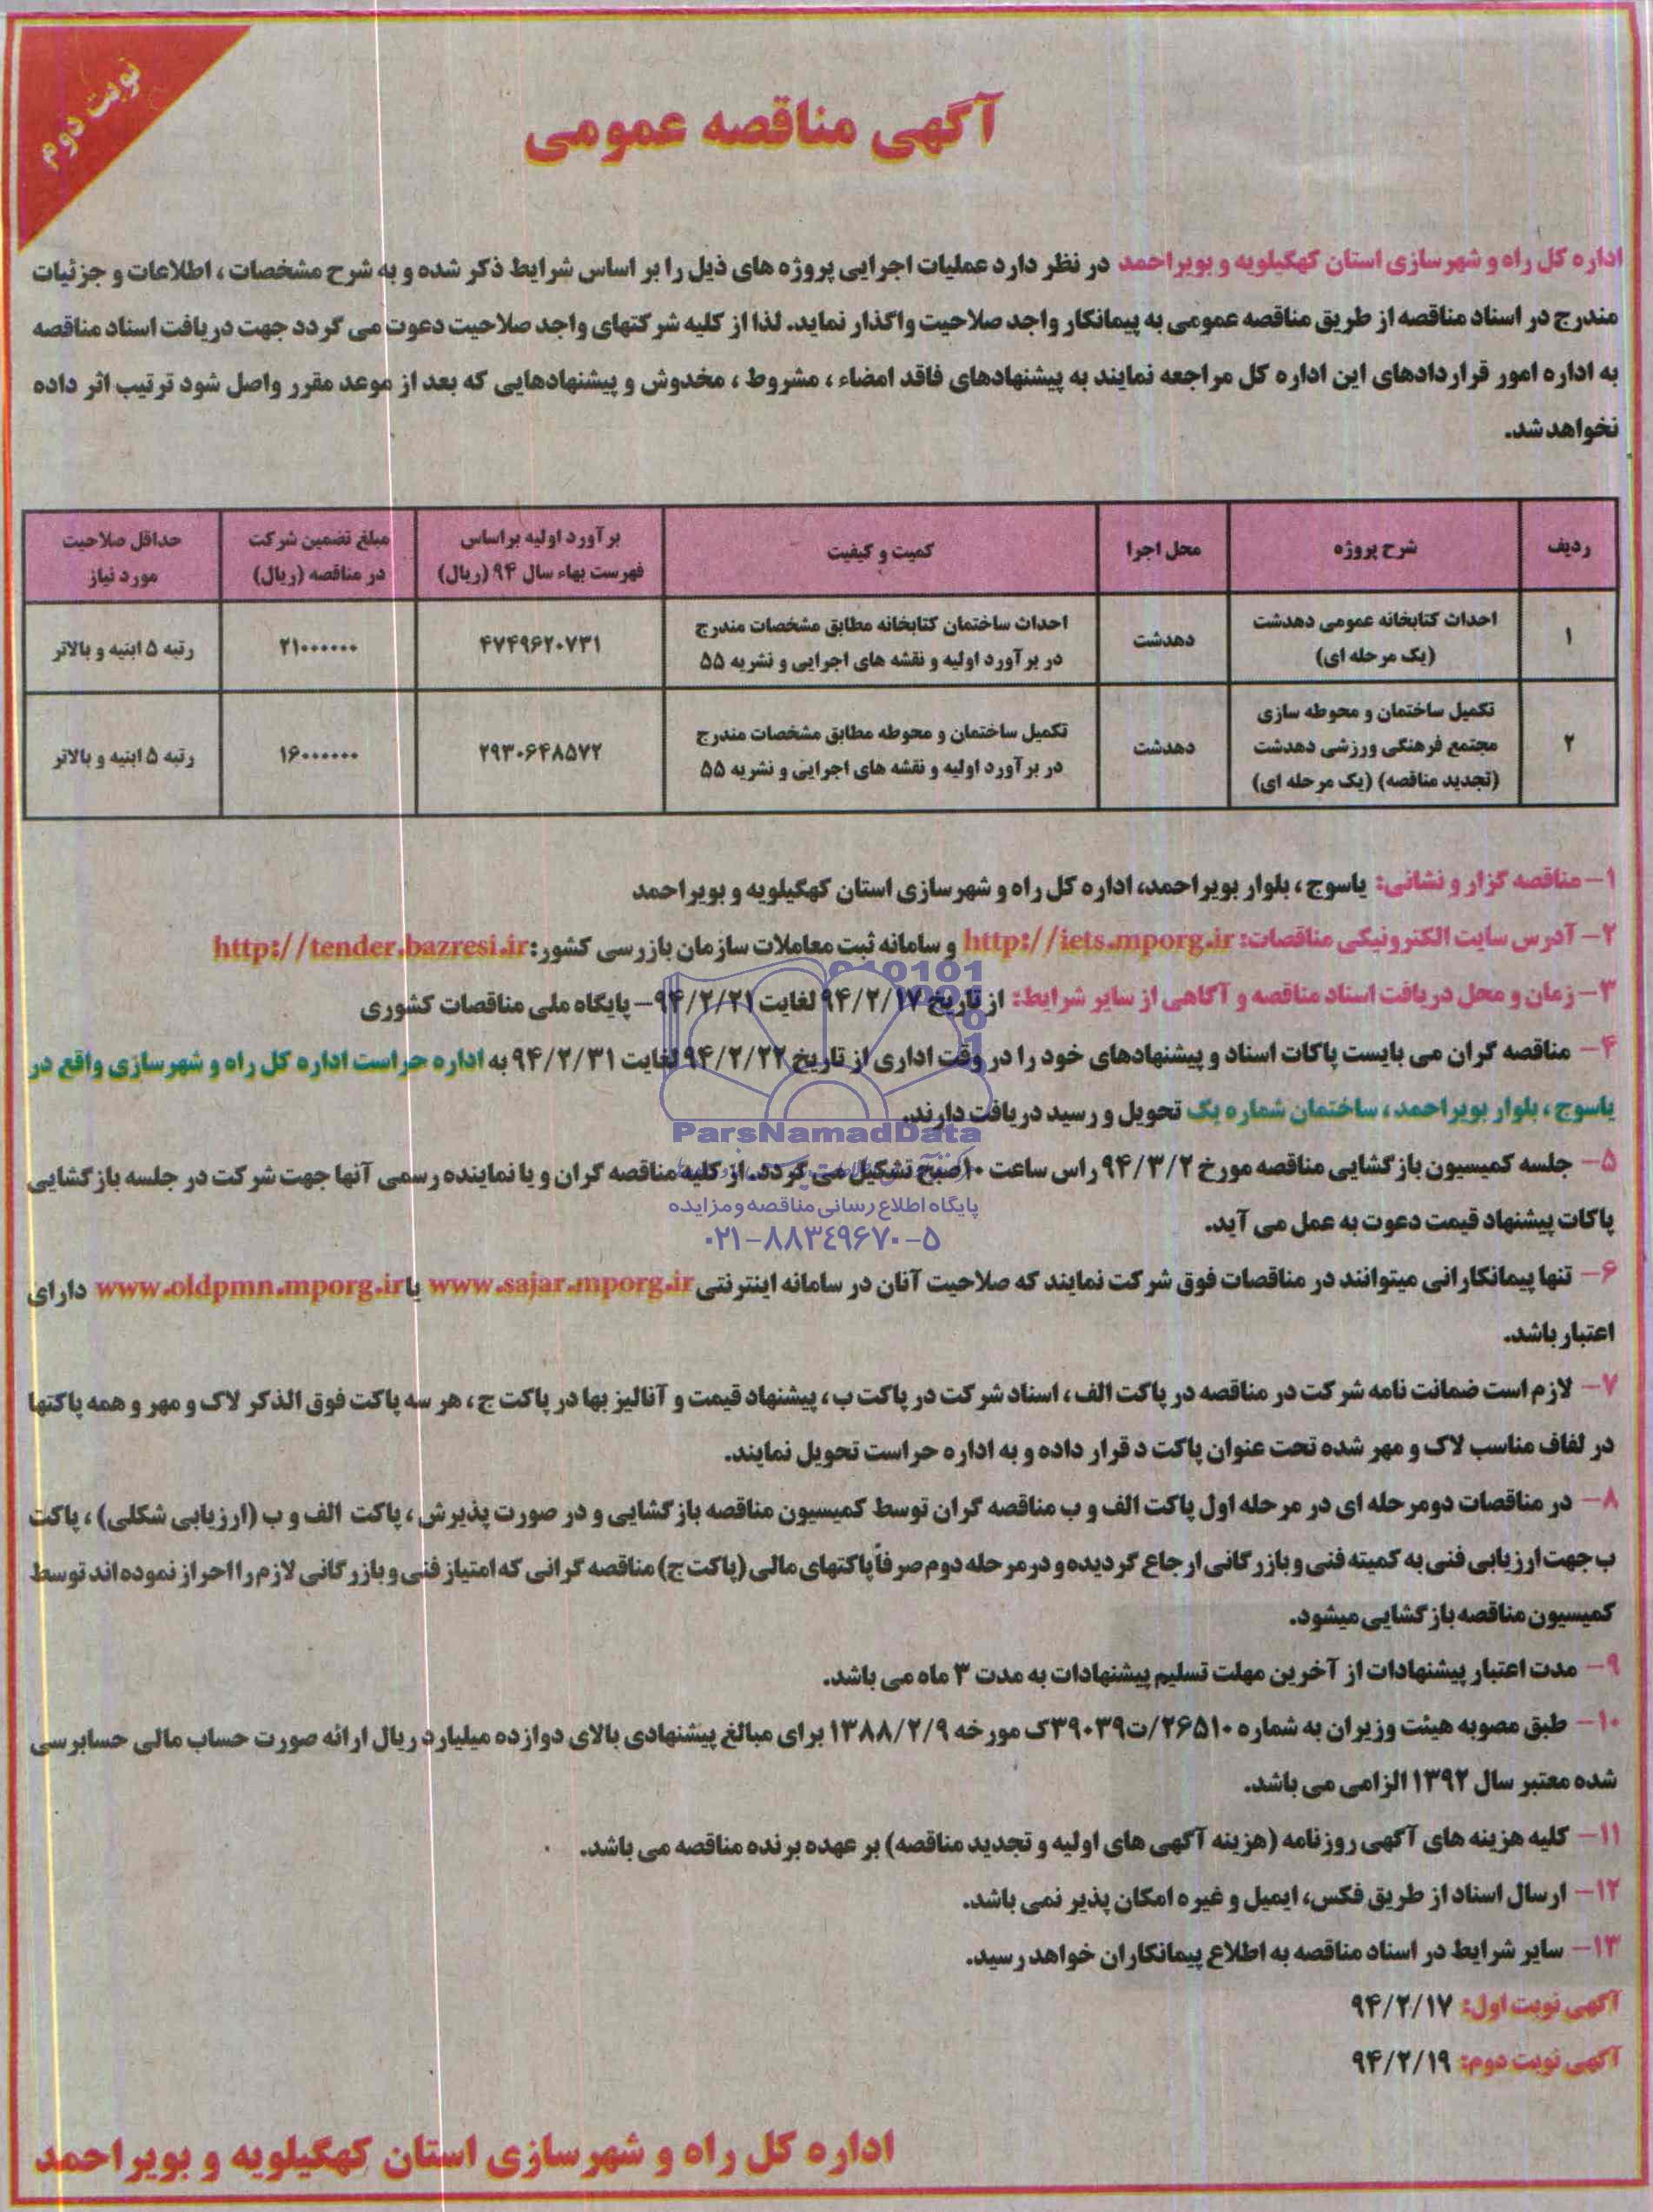 نوبت دوم
آگهی مناقصه عمومی
اداره کل راه و شهرسازی استان کهگیلویه و بویراحمد در نظر دارد عملیات اجرایی پروژه های ذیل را بر اساس شرایط ذکر شده و به شرح مشخصات ، اطلاعات و جزئیات
مندرج در اسناد مناقصه از طریق مناقصه عمومی به پیمانکار واجد صلاحیت واگذار نماید. لذا از کلیه شرکتهای واجد صلاحیت دعوت می گردد جهت دریافت اسناد مناقصه
به اداره امور قراردادهای این اداره کل مراجعه نمایند به پیشنهادهای فاقد امضاء ، مشروط ، مخدوش و پیشنهادهایی که بعد از موعد مقرر واصل شود ترتیب اثر داده
نخواهد شد.
ردیف شرح پروژه محل اجرا کمیت و کیفیت برآورد اولیه براساس مبلغ تضمین شرکت حداقل صلاحیت
فهرست بهاء سال ۹۴ (ریال) در مناقصه (ریال) مورد نیاز
۱ احداث کتابخانه عمومی دهدشت دهدشت احداث ساختمان کتابخانه مطابق مشخصات مندرج ۴۷۴۹۶۲۰۷۳۱ ۲۱۰۰۰۰۰۰ رتبه ۵ ابنیه و بالاتر
(یک مرحله ای) در برآورد اولیه و نقشه های اجرایی و نشریه ۵۵
۲ تکمیل ساختمان و محوطه سازی دهدشت تکمیل ساختمان و محوطه مطابق مشخصات مندرج ۲۹۳۰۶۴۸۵۷۲ ۱۶۰۰۰۰۰۰ رتبه ۵ ابنیه و بالاتر
مجتمع فرهنگی ورزشی دهدشت در برآورد اولیه و نقشه های اجرایی و نشریه ۵۵
(تجدید مناقصه) (یک مرحله ای)
۱– مناقصه گزار و نشانی: یاسوج ، بلوار بویراحمد، اداره کل راه و شهرسازی استان کهگیلویه و بویراحمد
۲– آدرس سایت الکترونیکی مناقصات: http://iets.mporg.ir و سامانه ثبت معاملات سازمان بازرسی کشور: http://tender.bazresi.ir
۳– زمان و محل دریافت اسناد مناقصه و آگاهی از سایر شرایط: از تاریخ ۹۴/۲/۱۷ لغایت ۹۴/۲/۲۱– پایگاه ملی مناقصات کشوری
۴– مناقصه گران می بایست پاکات اسناد و پیشنهادهای خود را در وقت اداری از تاریخ ۹۴/۲/۲۲ لغایت ۹۴/۲/۳۱ به اداره حراست اداره کل راه و شهرسازی واقع در
یاسوج ، بلوار بویراحمد ، ساختمان شماره یک تحویل و رسید دریافت دارند.
ParsNamadData
۵– جلسه کمیسیون بازگشایی مناقصه مورخ ۹۴/۳/۲ راس ساعت ۱۰ صبح تشکیل می گردد. از کلیه مناقصه گران و یا نماینده رسمی آنها جهت شرکت در جلسه بازگشایی
پاکات پیشنهاد قیمت دعوت به عمل می آید.
پایگاه اطلاع رسانی مناقصه و مزایده
۰۲۱–۸۸۳۴۹۶۷۰–۵
۶– تنها پیمانکارانی میتوانند در مناقصات فوق شرکت نمایند که صلاحیت آنان در سامانه اینترنتی www.sajar.mporg.ir یا www.oldpmn.mporg.ir دارای
اعتبار باشد.
۷– لازم است ضمانت نامه شرکت در مناقصه در پاکت الف ، اسناد شرکت در پاکت ب ، پیشنهاد قیمت و آنالیز بها در پاکت ج ، هر سه پاکت فوق الذکر لاک و مهر و همه پاکتها
در لفاف مناسب لاک و مهر شده تحت عنوان پاکت د قرار داده و به اداره حراست تحویل نمایند.
۸– در مناقصات دومرحله ای در مرحله اول پاکت الف و ب مناقصه گران توسط کمیسیون مناقصه بازگشایی و در صورت پذیرش ، پاکت الف و ب (ارزیابی شکلی) ، پاکت
ب جهت ارزیابی فنی به کمیته فنی و بازرگانی ارجاع گردیده و در مرحله دوم صرفاً پاکتهای مالی (پاکت ج) مناقصه گرانی که امتیاز فنی و بازرگانی لازم را احراز نموده اند توسط
کمیسیون مناقصه بازگشایی میشود.
۹– مدت اعتبار پیشنهادات از آخرین مهلت تسلیم پیشنهادات به مدت ۳ ماه می باشد.
۱۰– طبق مصوبه هیئت وزیران به شماره ۲۶۵۱۰/ت۳۹۰۳۹ک مورخه ۱۳۸۸/۲/۹ برای مبالغ پیشنهادی بالای دوازده میلیارد ریال ارائه صورت حساب مالی حسابرسی
شده معتبر سال ۱۳۹۲ الزامی می باشد.
۱۱– کلیه هزینه های آگهی روزنامه (هزینه آگهی های اولیه و تجدید مناقصه) بر عهده برنده مناقصه می باشد.
۱۲– ارسال اسناد از طریق فکس، ایمیل و غیره امکان پذیر نمی باشد.
۱۳– سایر شرایط در اسناد مناقصه به اطلاع پیمانکاران خواهد رسید.
آگهی نوبت اول: ۹۴/۲/۱۷
آگهی نوبت دوم: ۹۴/۲/۱۹
اداره کل راه و شهرسازی استان کهگیلویه و بویراحمد